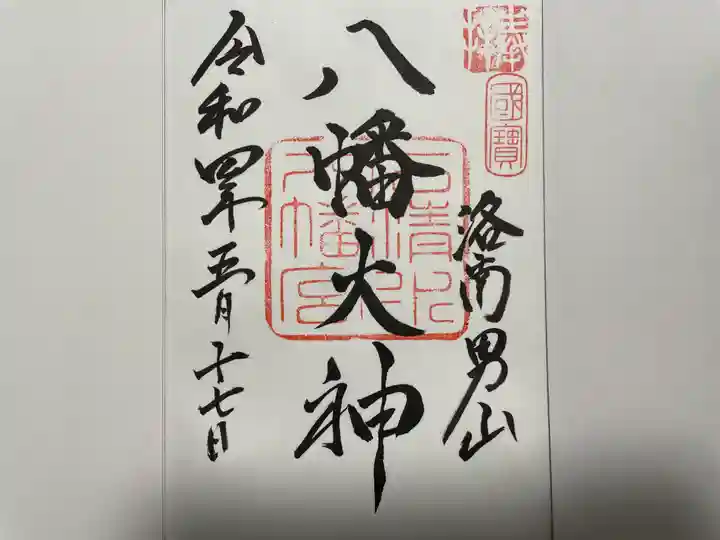 奉拝
國寶
洛南男山
八幡大神
石清水八幡宮
令和四年五月十七日